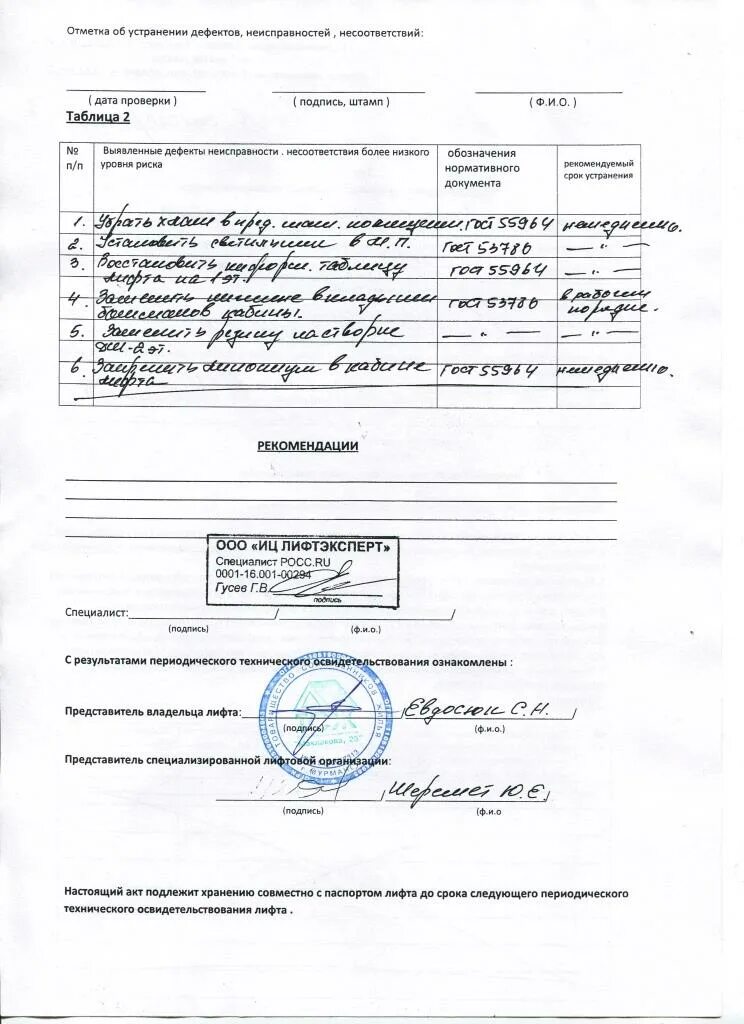 Отметка об устранении дефектов, неисправностей , несоответствий:
( дата проверки ) ( подпись, штамп ) ( Ф.И.О. )
Таблица 2
№ п/п
Выявленные дефекты неисправности . несоответствия более низкого уровня риска
обозначения нормативного документа
рекомендуемый срок устранения
1. Убрать хлам в пред. маш. помещении. ГОСТ 55964 немедленно.
2. Установить светильники в М.П. ГОСТ 53780 — " —
3. Восстановить информ. таблицу лифта на 1 эт. ГОСТ 55964 — " —
4. Заменить вкладыши башмаков кабины. ГОСТ 53780 в рабочем порядке.
5. Заменить резину на створке ДШ-2 эт. — " — — " —
6. Закрепить линолеум в кабине лифта ГОСТ 55964 немедленно.
РЕКОМЕНДАЦИИ
ООО «ИЦ ЛИФТЭКСПЕРТ»
Специалист РОСС.RU
0001-16.001-00294
Гусев Г.В.
подпись
Специалист: / /
(подпись) (ф.и.о.)
С результатами периодического технического освидетельствования ознакомлены :
ТОВАРИЩЕСТВО СОБСТВЕННИКОВ ЖИЛЬЯ
Г. МУРМАНСК
Представитель владельца лифта: / Евдосюк С.Н. /
(подпись) (ф.и.о.)
Представитель специализированной лифтовой организации:
/ Шеремет Ю.Е. /
(подпись) (ф.и.о
Настоящий акт подлежит хранению совместно с паспортом лифта до срока следующего периодического
технического освидетельствования лифта .